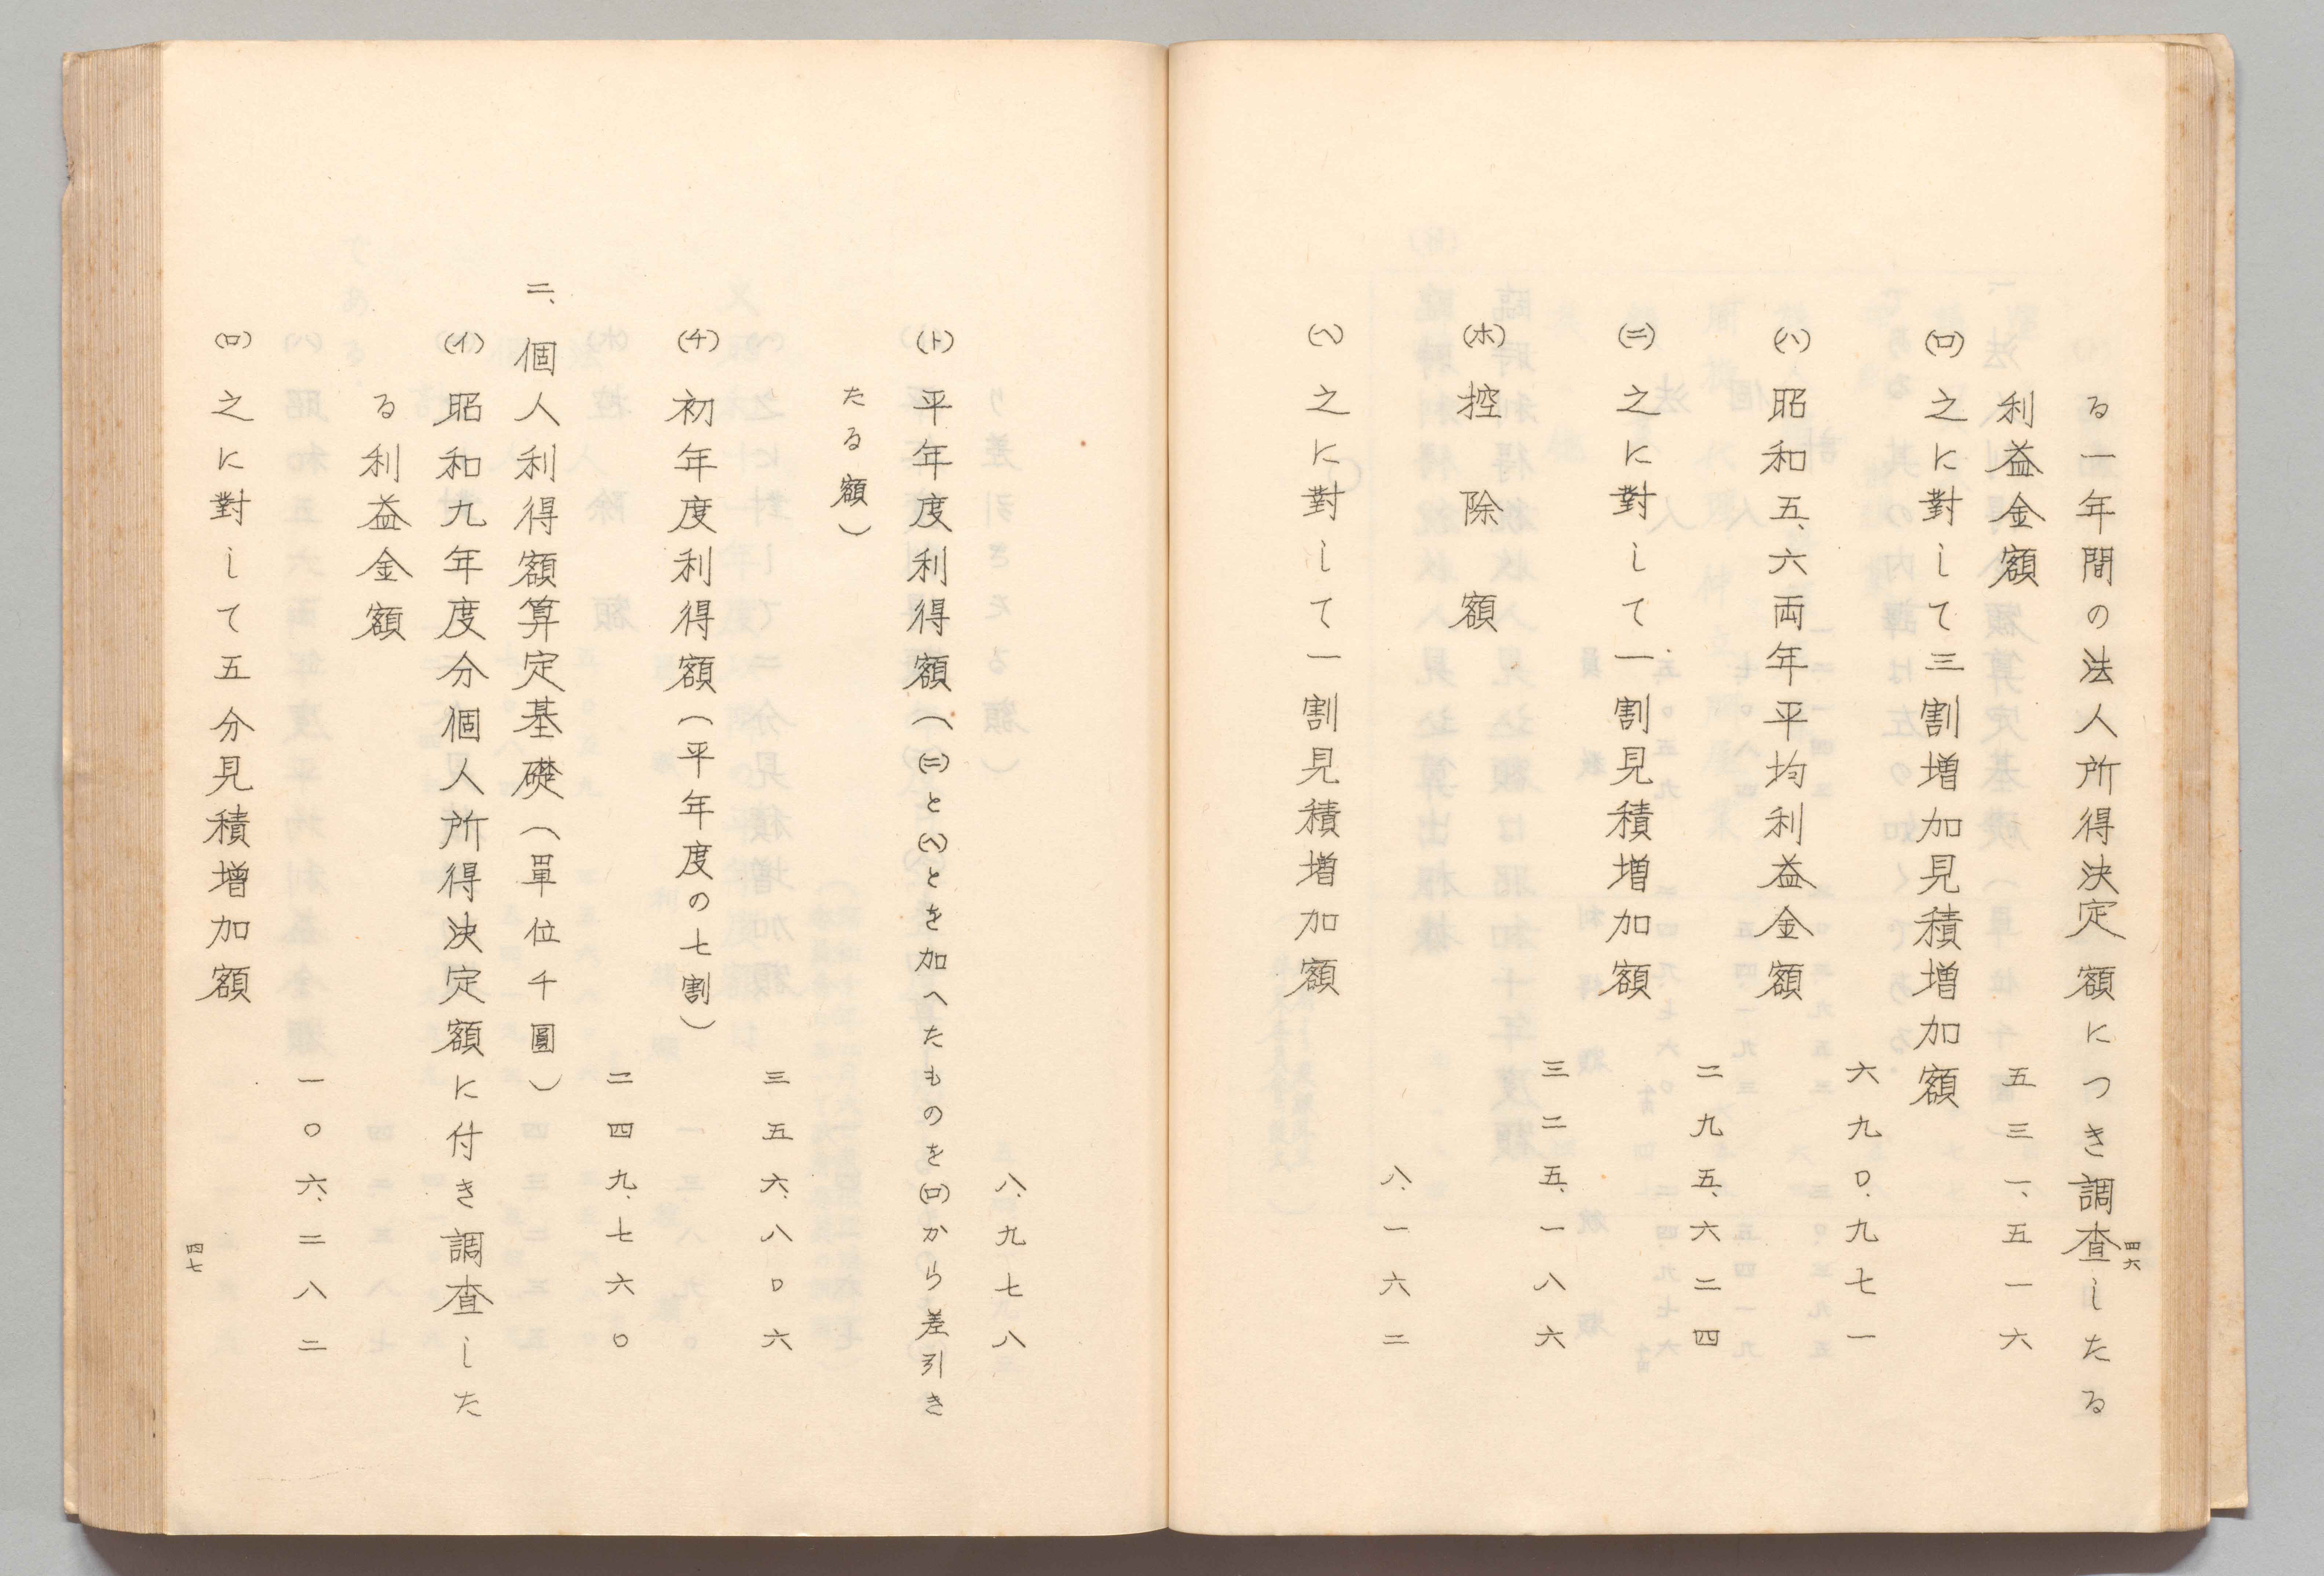 る一年間の法人所得決定額につき調査したる
利益金額
五三一、五一六
(ロ) 之に對して三割増加見積増加額
六九〇、九七一
(ハ) 昭和五、六両年平均利益金額
二九五、六二四
(ニ) 之に對して一割見積増加額
三二五、一八六
(ホ) 控除額
八、一六二
(ヘ) 之に對して一割見積増加額
四六
八、九七八
(ト) 平年度利得額（(ニ)と(ヘ)とを加へたものを(ロ)から差引き
たる額）
三五六、八〇六
(チ) 初年度利得額（平年度の七割）
二四九、七六〇
二、個人利得額算定基礎（單位千圓）
(イ) 昭和九年度分個人所得決定額に付き調査した
る利益金額
一〇六、二八二
(ロ) 之に對して五分見積増加額
四七